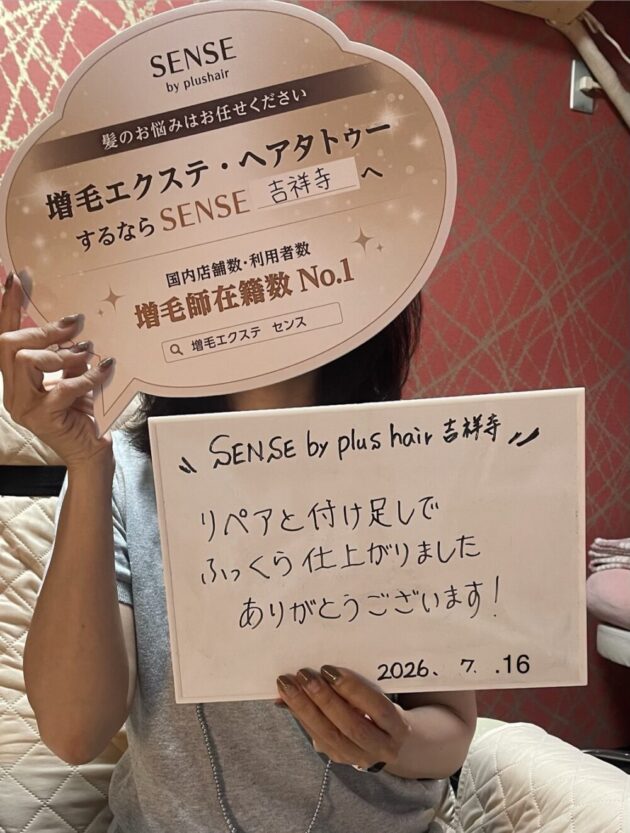 SENSE
by plushair
髪のお悩みはお任せください
増毛エクステ・ヘアタトゥー
するなら SENSE 吉祥寺 へ
国内店舗数・利用者数
増毛師在籍数 No.1
増毛エクステ センス
SENSE by plus hair 吉祥寺
リペアと付け足しで
ふっくら仕上がりました
ありがとうございます!
2026. 7. .16